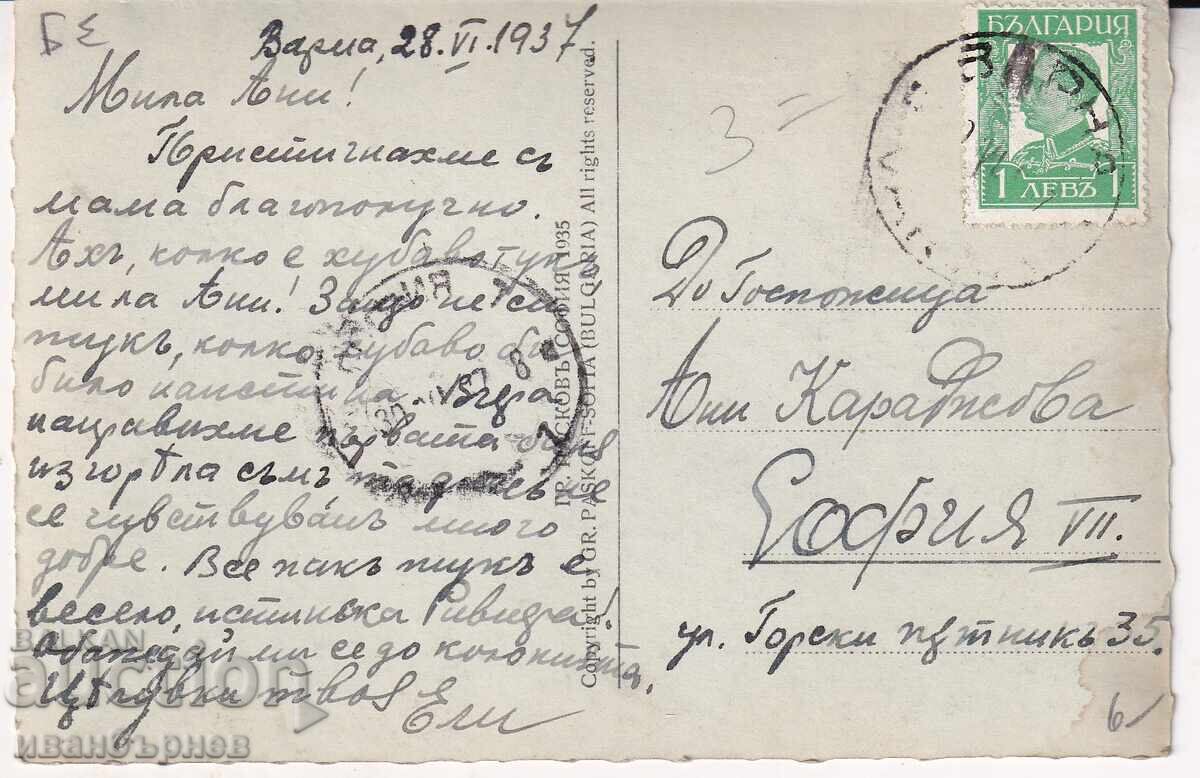 БЕ
Варна, 28.VI.1937.
Мила Ани!
Пристигнахме съ
мама благополучно.
Ахъ, колко е хубаво тук
мила Ани! Защо не си
тукъ, колко хубаво би
било наистина. Вчера
направихме първата баня
изгорѣла съмъ та днесъ не
се чувствувамъ много
добре. Все пакъ тукъ е
весело, истинска Ривиера!
Обаждай ми се до колонията.
Цѣлувки твоя Ели
ГР. ПАСКОВЪ, СОФИЯ, 1935
Copyright by GR. PASKOFF-SOFIA (BULGARIA) All rights reserved.
БЪЛГАРИЯ
1 ЛЕВЪ 1
ВАРНА
СОФИЯ
3 –
До Госпожица
Ани Караджова
София VII.
ул. Горски пѫтникъ 35.
6/
BALKAN
auction
иванбърнев